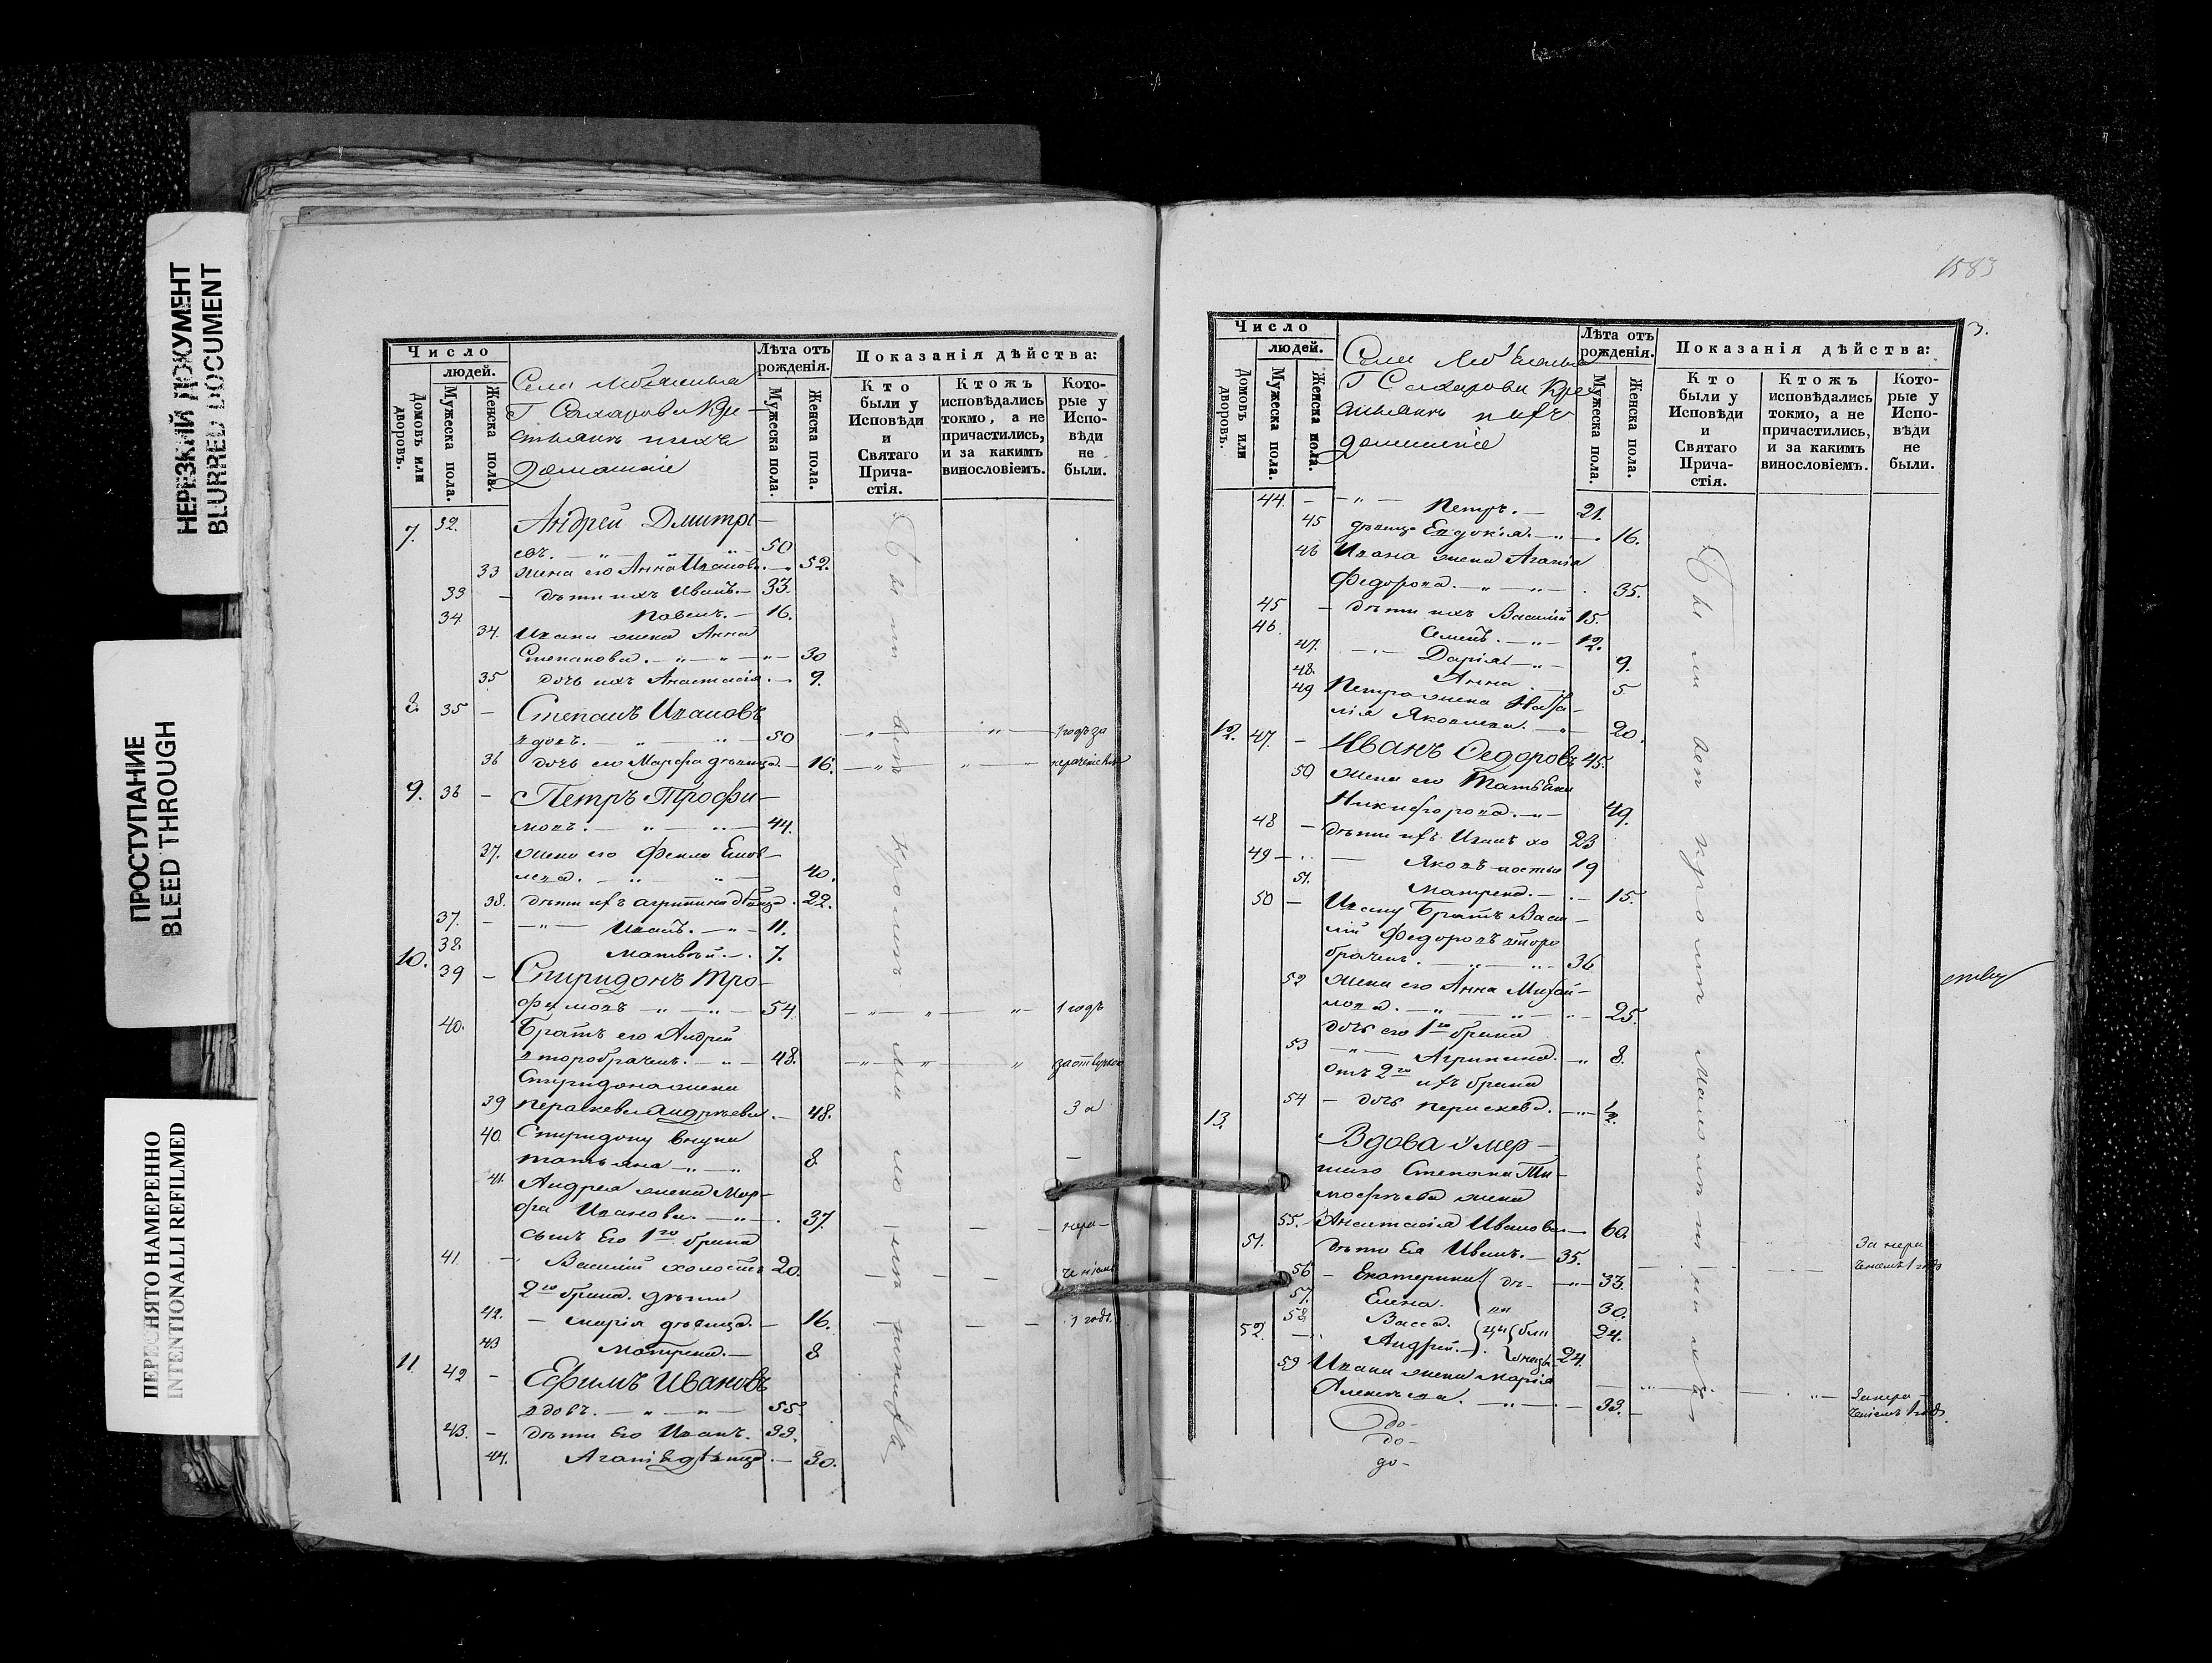 НЕРЕЗКИЙ ДОКУМЕНТ
BLURRED DOCUMENT
ПРОСТУПАНИЕ
BLEED THROUGH
ПЕРЕСНЯТО НАМЕРЕННО
INTENTIONALLI REFILMED
Число
людей.
Домовъ или дворовъ.
Мужеска пола.
Женска пола.
Села
Г Сахарова Кре-
стьяне ихъ
домашніе
Лѣта отъ рожденія.
Мужеска пола.
Женска пола.
Показанія дѣйства:
Кто были у Исповѣди и Святаго Прича-стія.
Ктожъ исповѣдались токмо, а не причастились, и за какимъ винословіемъ.
Кото-рые у Испо-вѣди не были.
7. 32. Андрей Дмитрі-
евъ. 50
33 жена его Анна Иванова. 52.
33 - дѣти ихъ Иванъ. - 33.
34 Павелъ. - 16.
34. Ивана жена Анна
Степанова. 30
35 дочь ихъ Анастасія. 9.
8. 35 - Степанъ Ивановъ
вдовъ. 50 1 годъ за
36 дочь его Марфа дѣвица. - 16. нераченіемъ
9. 36 - Петръ Трофи-
мовъ. 44.
37. жена его Фекла Емов-
лева. 40.
38. дѣти ихъ Агрипина дѣвица. 22.
37. - Иванъ. 11.
38. Матвѣй. 7.
10. 39 - Спиридонъ Тро-
фимовъ 54 1 годъ
40. Братъ его Андрей
второбрачен. 48. за отлучкою
Спиридона жена
39 Параскева Андреева. 48. За
40. Спиридону внука
Татьяна 8
41. Андрея жена Мар-
фа Иванова. 37. нера-
сынъ Его 1го брака
41. - Василій холостъ 20. ченіемъ
2го брака. дѣти
42. - Марія дѣвица. - 16. 1 годъ.
43 Матрена. - 8
11. 42 - Ефимъ Ивановъ
вдовъ. 55.
43. - дѣти Его Иванъ. 33.
44. Агапія дѣвица. - 30.
Были все кромѣ малолѣтныхъ
1583
3.
Число
людей.
Домовъ или дворовъ.
Мужеска пола.
Женска пола.
Села
Г Сахарова Кре
стьяне ихъ
домашніе
Лѣта отъ рожденія.
Мужеска пола.
Женска пола.
Показанія дѣйства:
Кто были у Исповѣди и Святаго Прича-стія.
Ктожъ исповѣдались токмо, а не причастились, и за какимъ винословіемъ.
Кото-рые у Испо-вѣди не были.
44. - Петръ. - 21.
45 дѣвица Евдокія. 16.
46 Ивана жена Агапія
Федорова. 35.
45 - дѣти ихъ Василій 15.
46. Семенъ. 12.
47. Дарія 9.
48. Анна 5
49 Петра жена Ната-
лія Яковлева. 20.
12. 47. - Иванъ Ѳедоровъ 45.
50 жена его Татьяна
Никифорова. 49.
48 - дѣти ихъ Иванъ хо 23
49 Яковъ лостые 19
51. Матрена. - 15.
50 - Ивану Братъ Васи-
лій Федоровъ второ
брачен. 36
52 жена его Анна Михай-
лова. 25.
дочь его 1го брака
53 Агрипина. 8.
Отъ 2го ихъ брака
54 - дочь Параскева. 1/2.
13. Вдова Умер-
шаго Степана Ти-
мофѣева жена
55. Анастасія Иванова. 60.
51. дѣти Ея Иванъ. - 35. За нера
56 - Екатерина дѣ- 33. ченіемъ 1 годъ
57. Елена. 30.
58. Васса. 24.
52. - Андрей. близнецы 24.
59 Ивана жена Марія
Алексѣева. 33. За нера-
ченіемъ 1 годъ.
до-
до-
до-
Были все кромѣ малолѣтныхъ